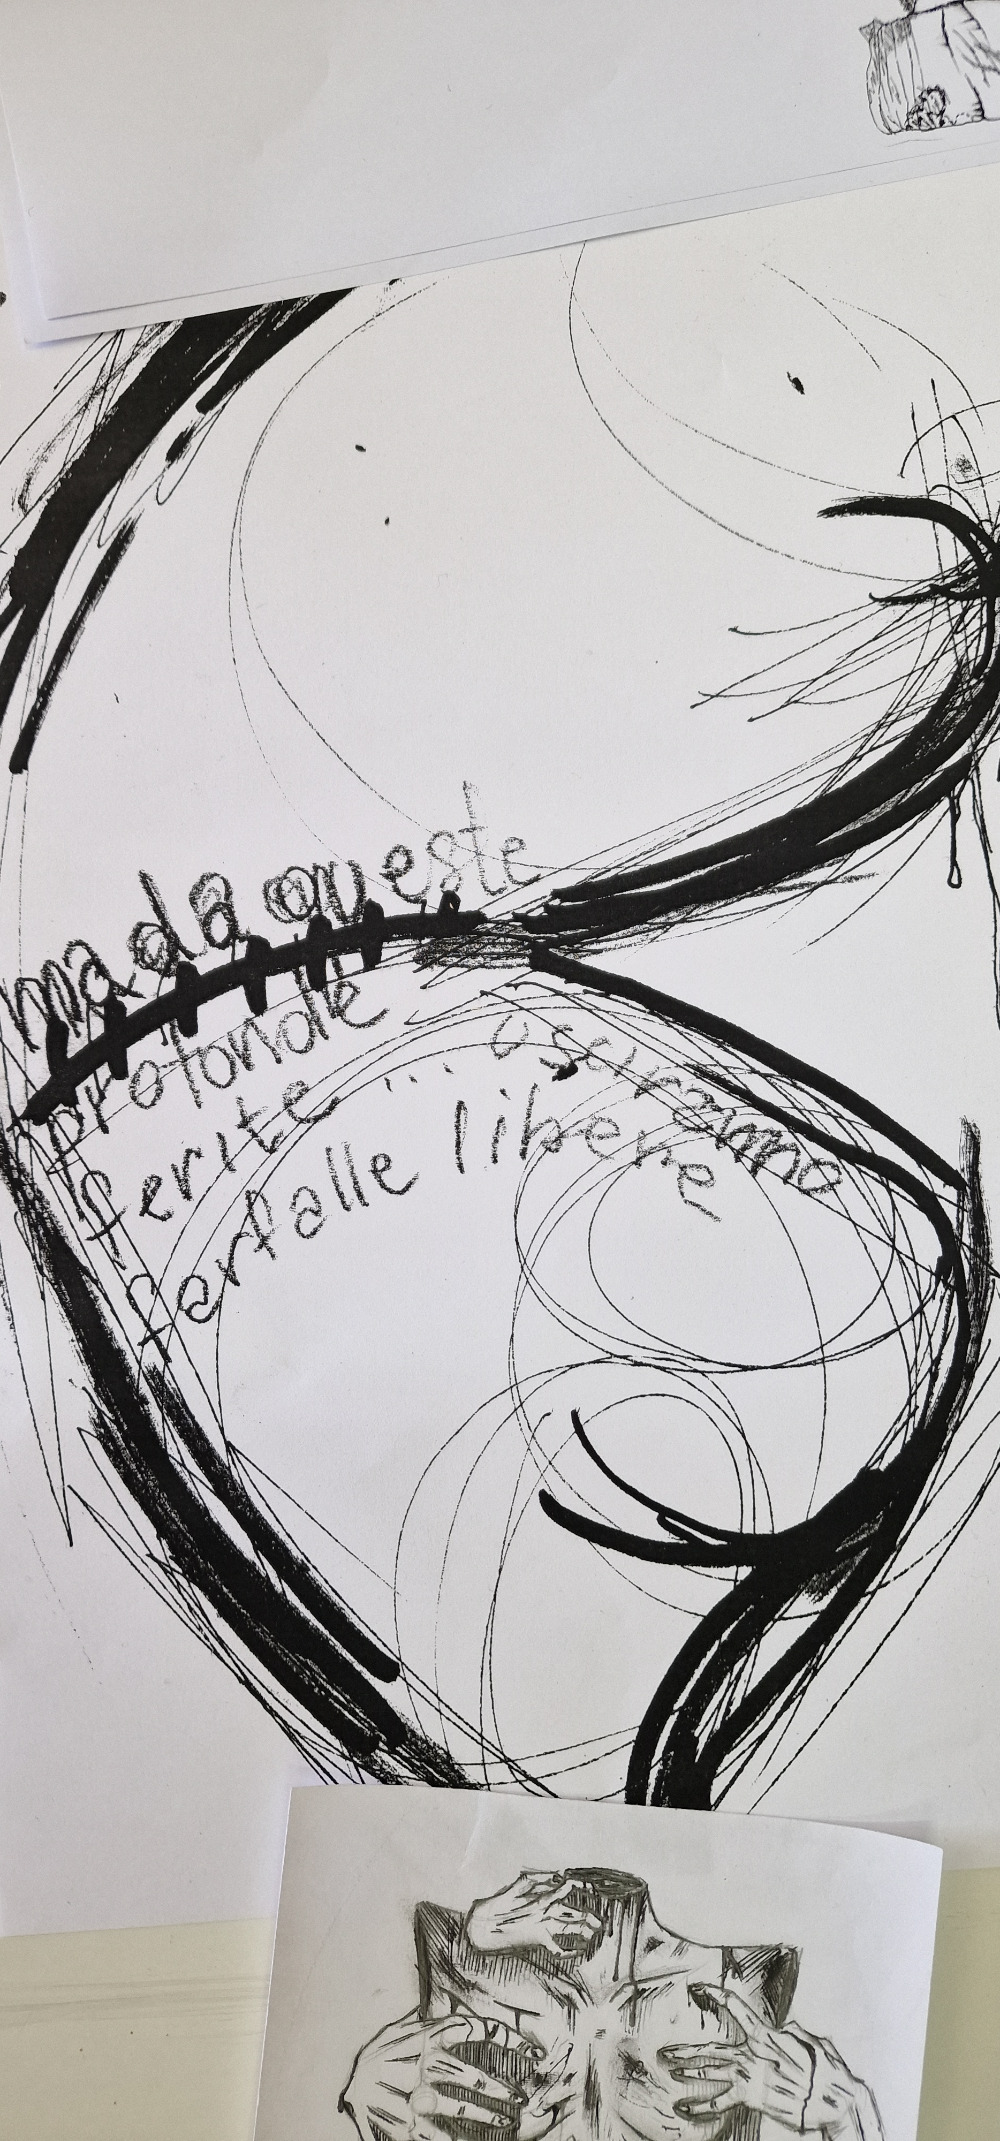 ma da queste
profonde
ferite ... usciranno
farfalle libere